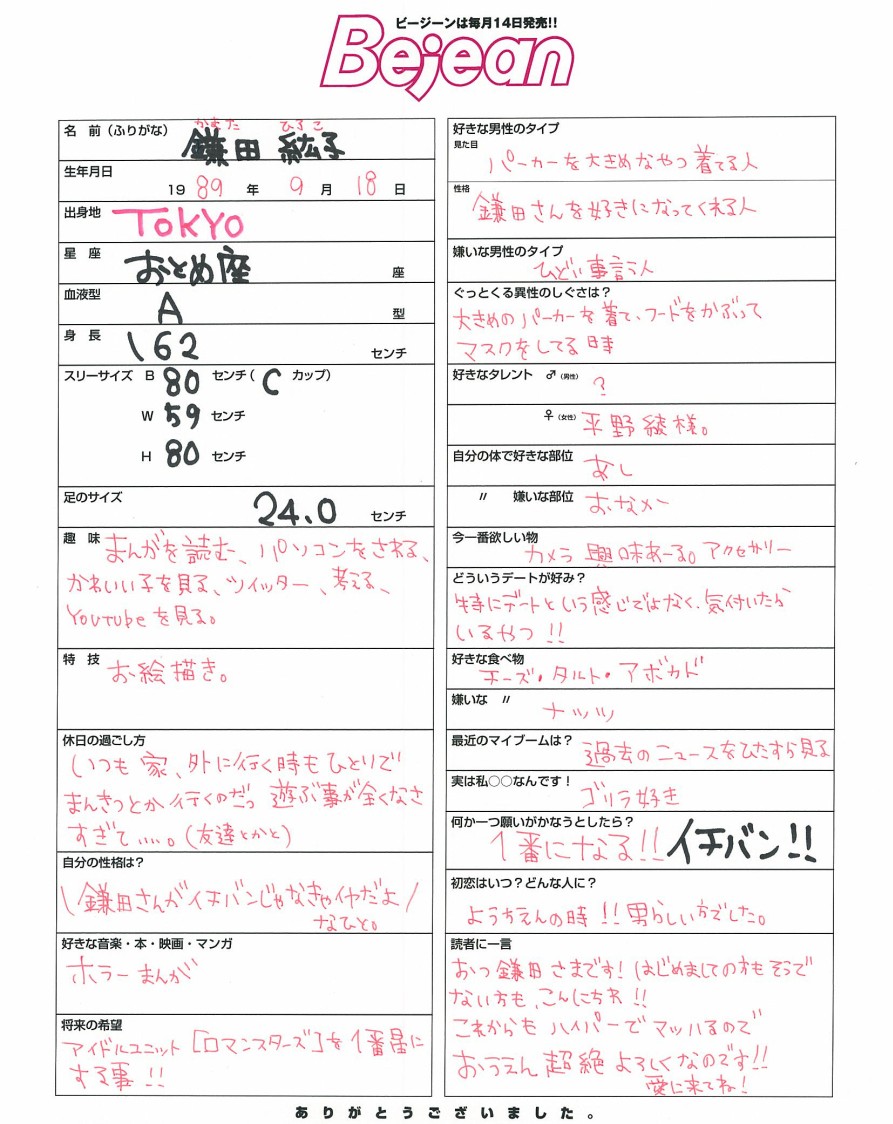 ビージーンは毎月14日発売!!
Bejean
名 前（ふりがな）
かまた ひろこ
鎌田 紘子
生年月日
19 89 年 9 月 18 日
出身地 TOKYO
星 座 おとめ座 座
血液型 A 型
身 長 162 センチ
スリーサイズ B 80 センチ（ C カップ）
W 59 センチ
H 80 センチ
足のサイズ 24.0 センチ
趣 味 まんがを読む、パソコンをされる、
かわいい子を見る、ツイッター、考える、
YouTubeを見る。
特 技 お絵描き。
休日の過ごし方
いつも家、外に行く時もひとりで
まんきつとか行くのだっ 遊ぶ事が全くなさ
すぎて.....。(友達とかと)
自分の性格は？
\鎌田さんがイチバンじゃなきゃイヤだよ/
なひと。
好きな音楽・本・映画・マンガ
ホラーまんが
将来の希望
アイドルユニット［ロマンスターズ］を1番星に
する事!!
好きな男性のタイプ
見た目 パーカーを大きめなやつ着てる人
性格 鎌田さんを好きになってくれる人
嫌いな男性のタイプ
ひどい事言う人
ぐっとくる異性のしぐさは？
大きめのパーカーを着て、フードをかぶって
マスクをしてる時
好きなタレント ♂（男性） ?
♀（女性） 平野綾様。
自分の体で好きな部位 あし
〃 嫌いな部位 おなか
今一番欲しい物
カメラ 興味あーる。アクセサリー
どういうデートが好み？
特にデートという感じではなく、気付いたら
いるやつ!!
好きな食べ物
チーズ・タルト・アボカド
嫌いな 〃
ナッツ
最近のマイブームは？ 過去のニュースをひたすら見る
実は私○○なんです！
ゴリラ好き
何か一つ願いがかなうとしたら？
1番になる!! イチバン!!
初恋はいつ？どんな人に？
ようちえんの時!!男らしい方でした。
読者に一言
おっ鎌田さまです!はじめましての方もそうで
ない方も、こんにちわ!!
これからもハイパーでマッハるので
おうえん超絶よろしくなのです!!
愛に来てね!
ありがとうございました。